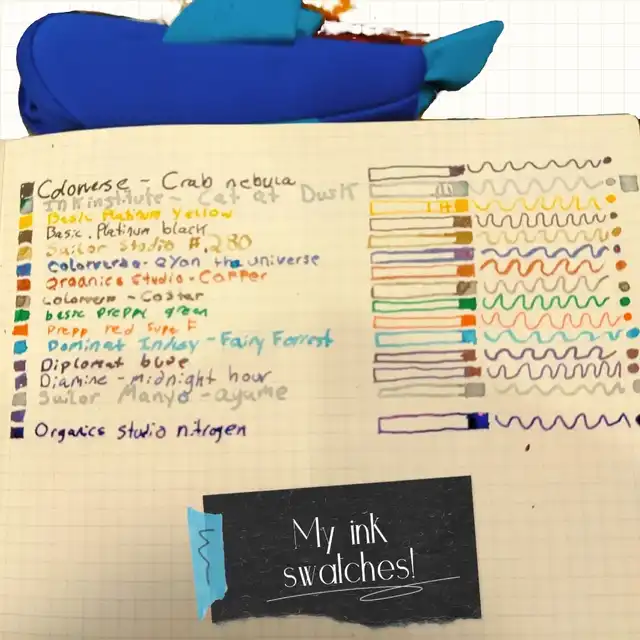 Colorverse - Crab nebula
Inkinstitute - Cat at Dusk
Basic Platinum Yellow
Basic Platinum black
Sailor Studio #.280
Colorverse - ayon the universe
Organics Studio - Copper
Colorverse - Coster
basic preppy green
Prepp red Supe F
Dominat Inkay - Fairy Forrest
Diplomat blue
Diamine - midnight hour
Sailor Manyo - ayame
Organics studio nitrogen
My ink
swatches!